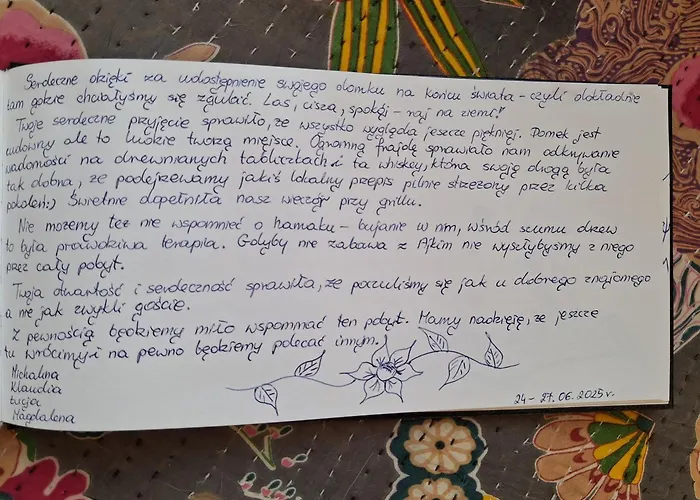 Serdeczne dzięki za udostępnienie swojego domku na końcu świata – czyli dokładnie
tam gdzie chciałyśmy się zgubić. Las, cisza, spokój – raj na ziemi!
Twoje serdeczne przyjęcie sprawiło, że wszystko wygląda jeszcze piękniej. Domek jest
cudowny ale to ludzie tworzą miejsce. Ogromną frajdę sprawiało nam odkrywanie
wiadomości na drewnianych tabliczkach i ta whiskey, która swoją drogą była
tak dobra, że podejrzewamy jakiś lokalny przepis pilnie strzeżony przez kilka
pokoleń:) Świetnie dopełniła nasz wieczór przy grillu.
Nie możemy też nie wspomnieć o hamaku – bujanie w nim, wśród szumu drzew
to była prawdziwa terapia. Gdyby nie zabawa z Ajkim nie wyszłybyśmy z niego
przez cały pobyt.
Twoja otwartość i serdeczność sprawiła, że poczuliśmy się jak u dobrego znajomego
a nie jak zwykli goście.
Z pewnością będziemy miło wspominać ten pobyt. Mamy nadzieję, że jeszcze
tu wrócimy i na pewno będziemy polecać innym.
Michalina
Klaudia
Łucja
Magdalena
24-27.06.2025 r.